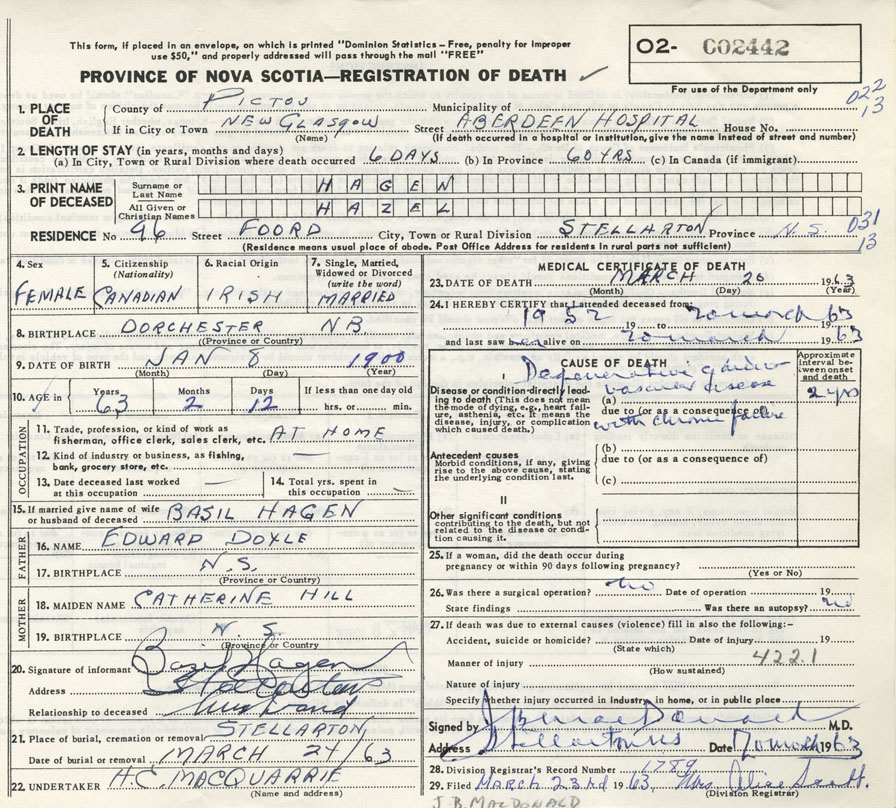 This form, if placed in an envelope, on which is printed "Dominion Statistics - Free, penalty for improper
use $50," and properly addressed will pass through the mail "FREE"
O2- C02442
PROVINCE OF NOVA SCOTIA—REGISTRATION OF DEATH ✓
For use of the Department only
022
13
1. PLACE OF DEATH
County of PICTOU Municipality of
If in City or Town NEW GLASGOW Street ABERDEEN HOSPITAL House No.
(Name) (If death occurred in a hospital or institution, give the name instead of street and number)
2. LENGTH OF STAY (in years, months and days)
(a) In City, Town or Rural Division where death occurred 6 DAYS (b) In Province 60 YRS (c) In Canada (if immigrant)
3. PRINT NAME OF DECEASED
Surname or Last Name HAGEN
All Given or Christian Names HAZEL
031
13
RESIDENCE No 96 Street FOORD City, Town or Rural Division STELLARTON Province N.S.
(Residence means usual place of abode. Post Office Address for residents in rural parts not sufficient)
4. Sex FEMALE
5. Citizenship (Nationality) CANADIAN
6. Racial Origin IRISH
7. Single, Married, Widowed or Divorced (write the word) MARRIED
8. BIRTHPLACE DORCHESTER NB
(Province or Country)
9. DATE OF BIRTH JAN 8 1900
(Month) (Day) (Year)
10. AGE in Years 63 Months 2 Days 12 If less than one day old hrs. or min.
OCCUPATION
11. Trade, profession, or kind of work as
fisherman, office clerk, sales clerk, etc. AT HOME
12. Kind of industry or business, as fishing,
bank, grocery store, etc. —
13. Date deceased last worked
at this occupation —
14. Total yrs. spent in
this occupation —
15. If married give name of wife
or husband of deceased BASIL HAGEN
FATHER
16. NAME EDWARD DOYLE
17. BIRTHPLACE N.S.
(Province or Country)
MOTHER
18. MAIDEN NAME CATHERINE HILL
19. BIRTHPLACE N.S.
(Province or Country
20. Signature of informant Basil Hagen
Address Stellarton
Relationship to deceased Husband
21. Place of burial, cremation or removal STELLARTON
Date of burial or removal MARCH 24/63
22. UNDERTAKER H.C. MACQUARRIE
(Name and address)
MEDICAL CERTIFICATE OF DEATH
23. DATE OF DEATH MARCH 20 1963
(Month) (Day) (Year)
24. I HEREBY CERTIFY that I attended deceased from:
1952 19 to 20 march 1963
and last saw her alive on 20 march 1963
CAUSE OF DEATH
Approximate interval between onset and death
I
Disease or condition directly leading to death (This does not mean the mode of dying, e.g., heart failure, asthenia, etc. It means the disease, injury, or complication which caused death.)
Degenerative cardio
(a) vascular disease 2 yrs
due to (or as a consequence of)
with chronic failure
Antecedent causes
Morbid conditions, if any, giving rise to the above cause, stating the underlying condition last.
(b)
due to (or as a consequence of)
(c)
II
Other significant conditions
contributing to the death, but not related to the disease or condition causing it.
25. If a woman, did the death occur during
pregnancy or within 90 days following pregnancy?
(Yes or No)
26. Was there a surgical operation? no Date of operation 19
State findings Was there an autopsy? no
27. If death was due to external causes (violence) fill in also the following:-
Accident, suicide or homicide? Date of injury 19
(State which)
422.1
Manner of injury
(How sustained)
Nature of injury
Specify whether injury occurred in Industry, in home, or in public place
Signed by J B MacDonald M.D.
Address Stellarton NS Date 20 march 1963
28. Division Registrar's Record Number 1789
29. Filed MARCH 23rd 1963. Mrs. Alice Scott.
(Division Registrar)
J.B. MACDONALD